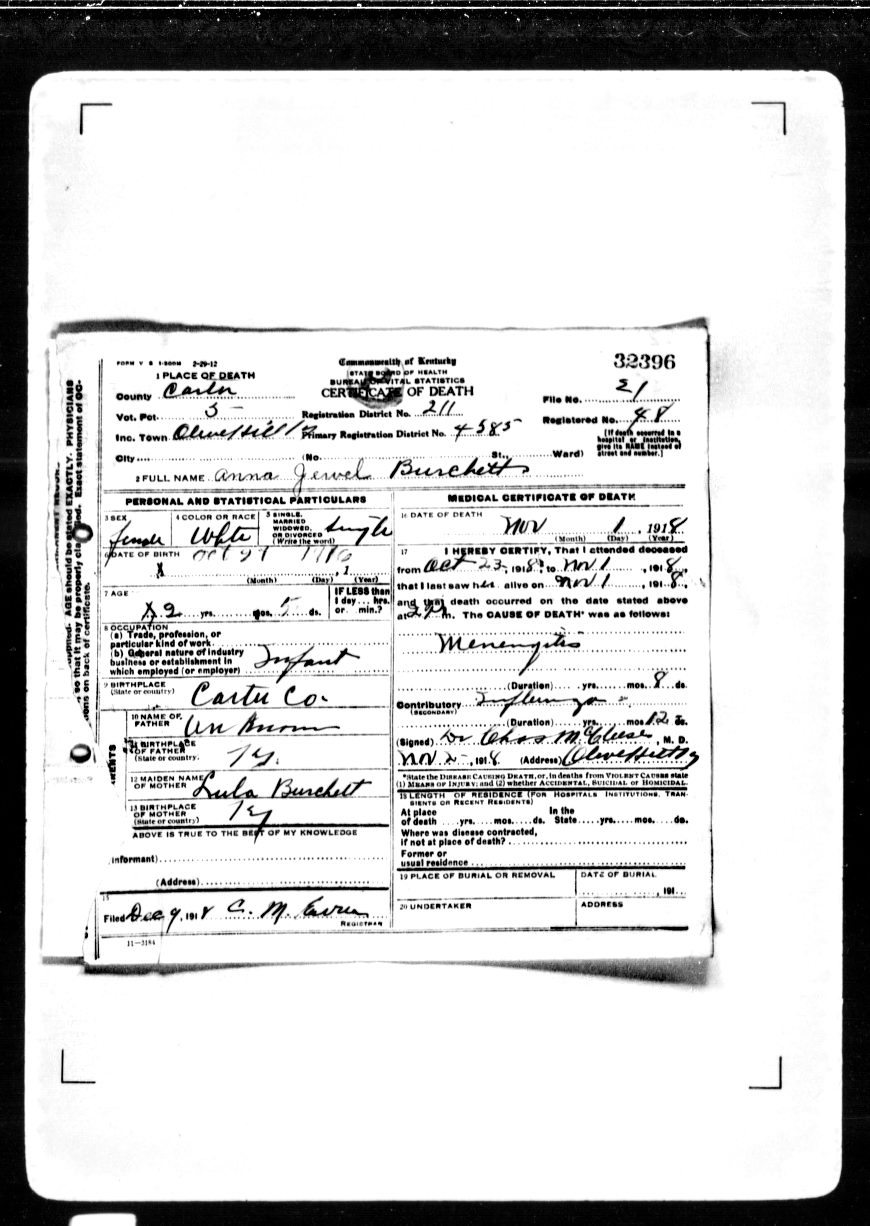 FORM V S 1-500M 2-29-12
Commonwealth of Kentucky
32396
1 PLACE OF DEATH
STATE BOARD OF HEALTH
BUREAU OF VITAL STATISTICS
County Carter
CERTIFICATE OF DEATH
File No. 21
Vot. Pct. 5
Registration District No. 211
Registered No. 48
Inc. Town Olive Hill Ky
Primary Registration District No. 4585
(If death occurred in a hospital or institution, give its NAME instead of street and number.)
City (No. St., Ward)
2 FULL NAME Anna Jewel Burchett
PERSONAL AND STATISTICAL PARTICULARS
3 SEX female
4 COLOR OR RACE White
5 SINGLE, MARRIED WIDOWED, OR DIVORCED (Write the word) Single
6 DATE OF BIRTH Oct 27 1916
(Month) (Day) , 1 (Year)
7 AGE
2 yrs. mos. 5 ds.
IF LESS than 1 day... hrs. or min.?
8 OCCUPATION
(a) Trade, profession, or particular kind of work
(b) General nature of industry business or establishment in which employed (or employer) Infant
9 BIRTHPLACE (State or country) Carter Co.
10 NAME OF FATHER Un Known
11 BIRTHPLACE OF FATHER (State or country. Ky.
12 MAIDEN NAME OF MOTHER Lula Burchett
13 BIRTHPLACE OF MOTHER (State or country) Ky
ABOVE IS TRUE TO THE BEST OF MY KNOWLEDGE
Informant)
(Address)
15
Filed Dec 9, 1918 C. M.
REGISTRAR
11-3184
MEDICAL CERTIFICATE OF DEATH
16 DATE OF DEATH
Nov 1, 1918
(Month) (Day) (Year)
17 I HEREBY CERTIFY, That I attended deceased
from Oct 23, 1918, to Nov 1, 1918,
that I last saw her alive on Nov 1, 1918,
and that death occurred on the date stated above
at m. The CAUSE OF DEATH* was as follows:
Menengitis
(Duration) yrs. mos. 8 ds.
Contributory Influenza
(SECONDARY)
(Duration) yrs. mos. 12 ds.
(Signed) Dr Chas McCleese, M. D.
Nov 2, 1918 (Address) Olive Hill Ky
*State the DISEASE CAUSING DEATH, or, in deaths from VIOLENT CAUSES state
(1) MEANS OF INJURY; and (2) whether ACCIDENTAL, SUICIDAL or HOMICIDAL.
18 LENGTH OF RESIDENCE (FOR HOSPITALS INSTITUTIONS, TRANSIENTS OR RECENT RESIDENTS)
At place of death yrs. mos. ds. In the State yrs. mos. ds.
Where was disease contracted, if not at place of death?
Former or usual residence
19 PLACE OF BURIAL OR REMOVAL
DATE OF BURIAL
, 191
20 UNDERTAKER
ADDRESS
AGE should be stated EXACTLY. PHYSICIANS
so that it may be properly classified. Exact statement of OC-
on back of certificate.